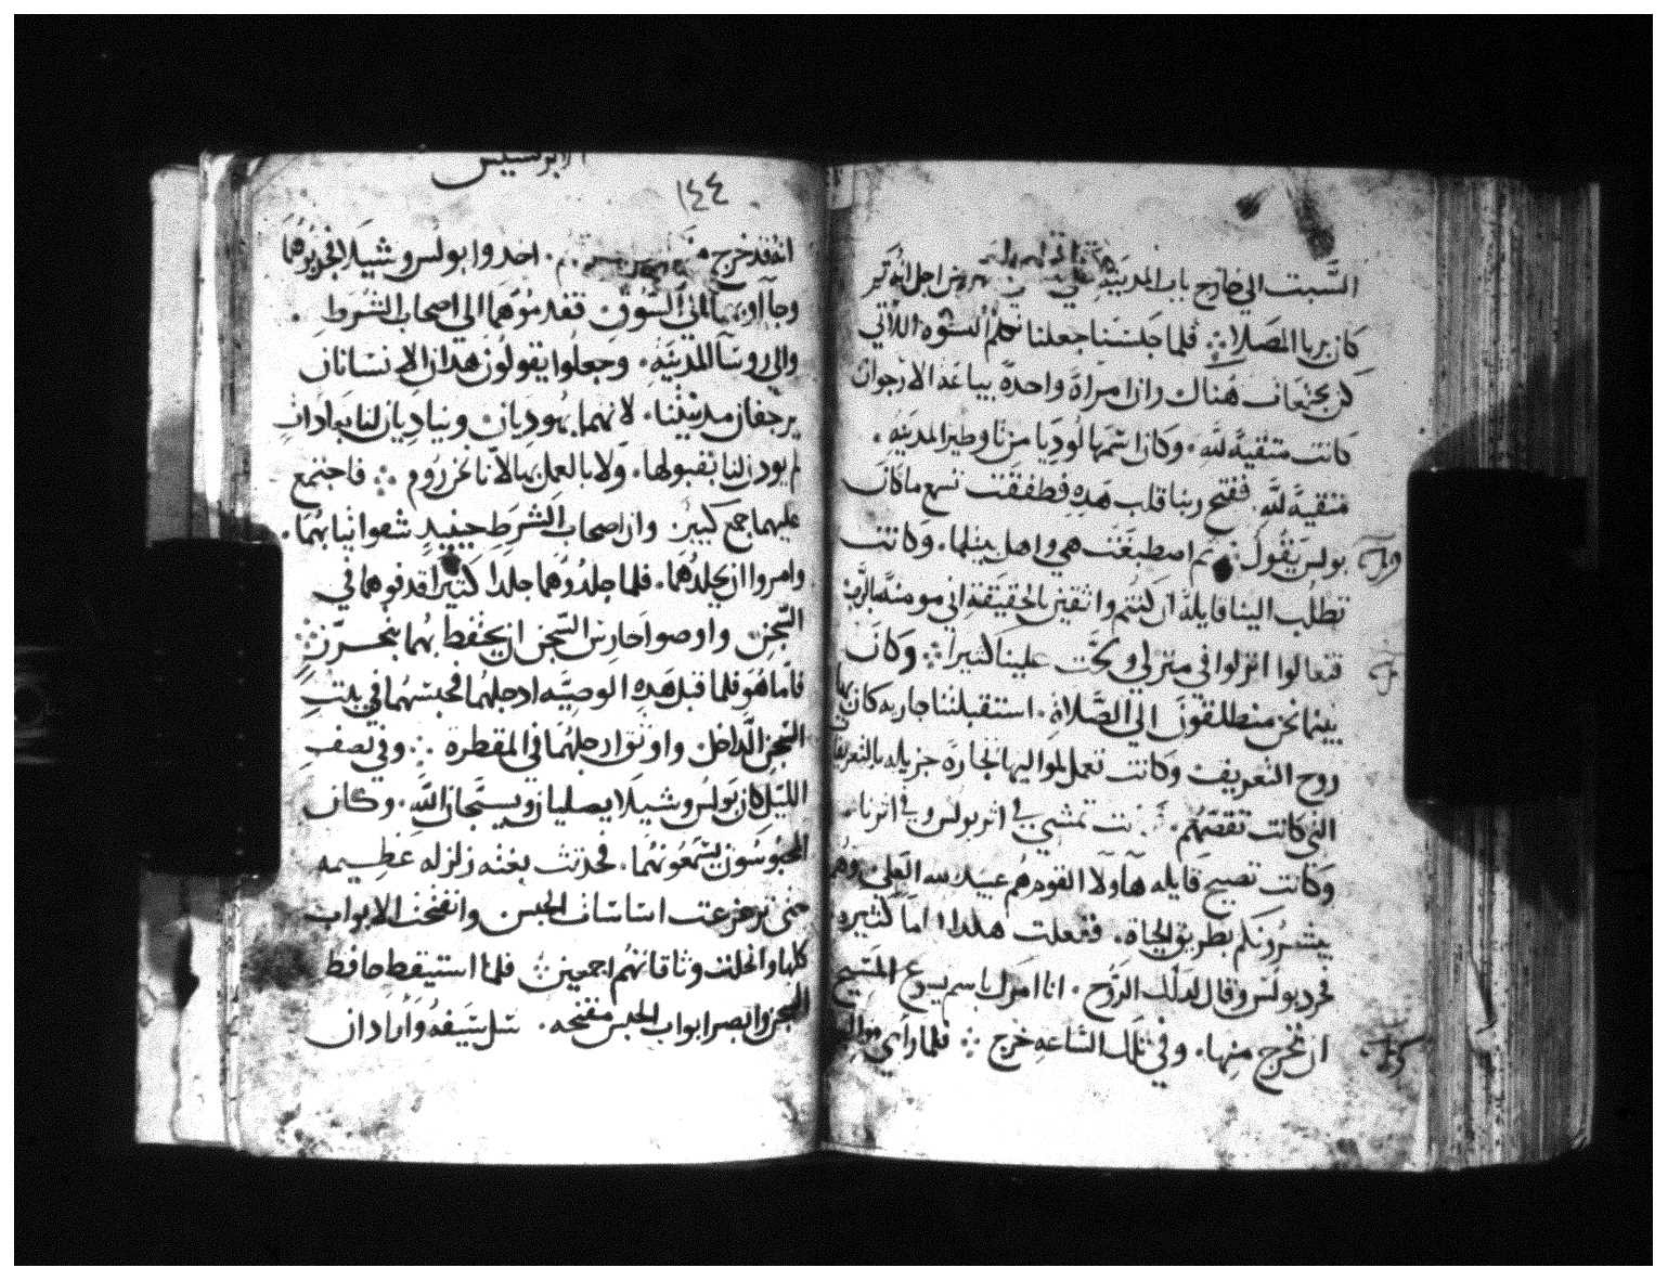 السَّبت الي خارج باب المدينَة علي من اجل انه تَر
كان يربا المصَلاه ۞ فلما جَلسَنا جعلنا نكلم النسْوه اللاتي
كن يجتمعَان هُناك وان امرَاةً واحدةً بياعَة الارجوان
كانت متقيةً للهِ. وكان اسْمها لُوديا من ثاوطير المدينهِ.
متقيةً للهِ. ففتح ربنا قلب هَذِهِ فطفقَت تسمع ما كان
بولسْ يَقُول ۞ ثم اصطبغَت هي واهل بيتها. وَكانت
تطلب الينا قايلةً ان كنتم واثقين بالحقيَقة اني مومنةً بالرّب
فتعالوا انزلوا في منزلي و لحَّت علينا كثيرا ۞ وَكانَ
بينما نحن منطلقونَ الي الصَّلاةِ. استقبلتنا جاريه كان بها
روح التعريف وكانت تعمل لمواليها تجارة جزيله بالتعريف
التي كانت تقصهُم. كانت تمشي في اثر بولس وفي اثرنا.
وَكانت تصيح قايله هَاولا القوم هُم عبيد لله العَلي وهم
يبشرُونكم بطريق الحياة. ففعلت هكذا اياما كثيره
فحرد بولسْ وقال لذلك الروُّح. انا امرك باسم يسوع المسَيح
ان تخرج مِنها. وفي تلك السَّاعهِ خرج ۞ فلما رَاي مواليها
الابركسيس
١٤٤
انهُ قد خرج اخدوا بولس وشيلا فجرّوهُما
وجآاو بهما الي السُّوق فقدموُهَما الي اصحاب الشُرَط.
والي روسَا المدينَه. وجعلُوا يقولُون هدان الانسَانان
يرجفان مدينتنا. لانهما يهُوديان وينادِيان لنا بعادات
لم يودن لنا بقبولها. وَلا بالعمل بها لأنّا نحن رُوم ۞ فاجتمع
عليهما جمع كبير وان اصحاب الشرَط حينيدٍ شقوا ثيابهُما.
وامروا ان يجلدُهَما. فلما جلدُوُهَما جلدا كثيرا قدفوهما في
السّجنِ واوصوا حارس السّجن ان يحتفظ بهُما بتحرّز ۞
فامّا هُوَ فلما قبل هَذهِ الوصيَّه ادخلهُما فحبسَهُما في بيت
السّجنِ الدَّاخل واوثق ارجلهُما في المقطره ۞ وفي نصف
الليَل كان بَولُس وشيلَا يصليان ويسَبّحان اللَّه. وكان
المحبُوسَون يسْمعُونهُما. فحدثت بغته زلزله عَظِيمه
حتى تزعزعت اسَاسَات الحبس وانفتحت الابواب
كلها وانحلت وثاقاتهُم اجمعين ۞ فلما استيقظ حافظ
السّجن وابصر ابواب الحبس مفتحه. سَل سَيفهُ وَارَادَ ان